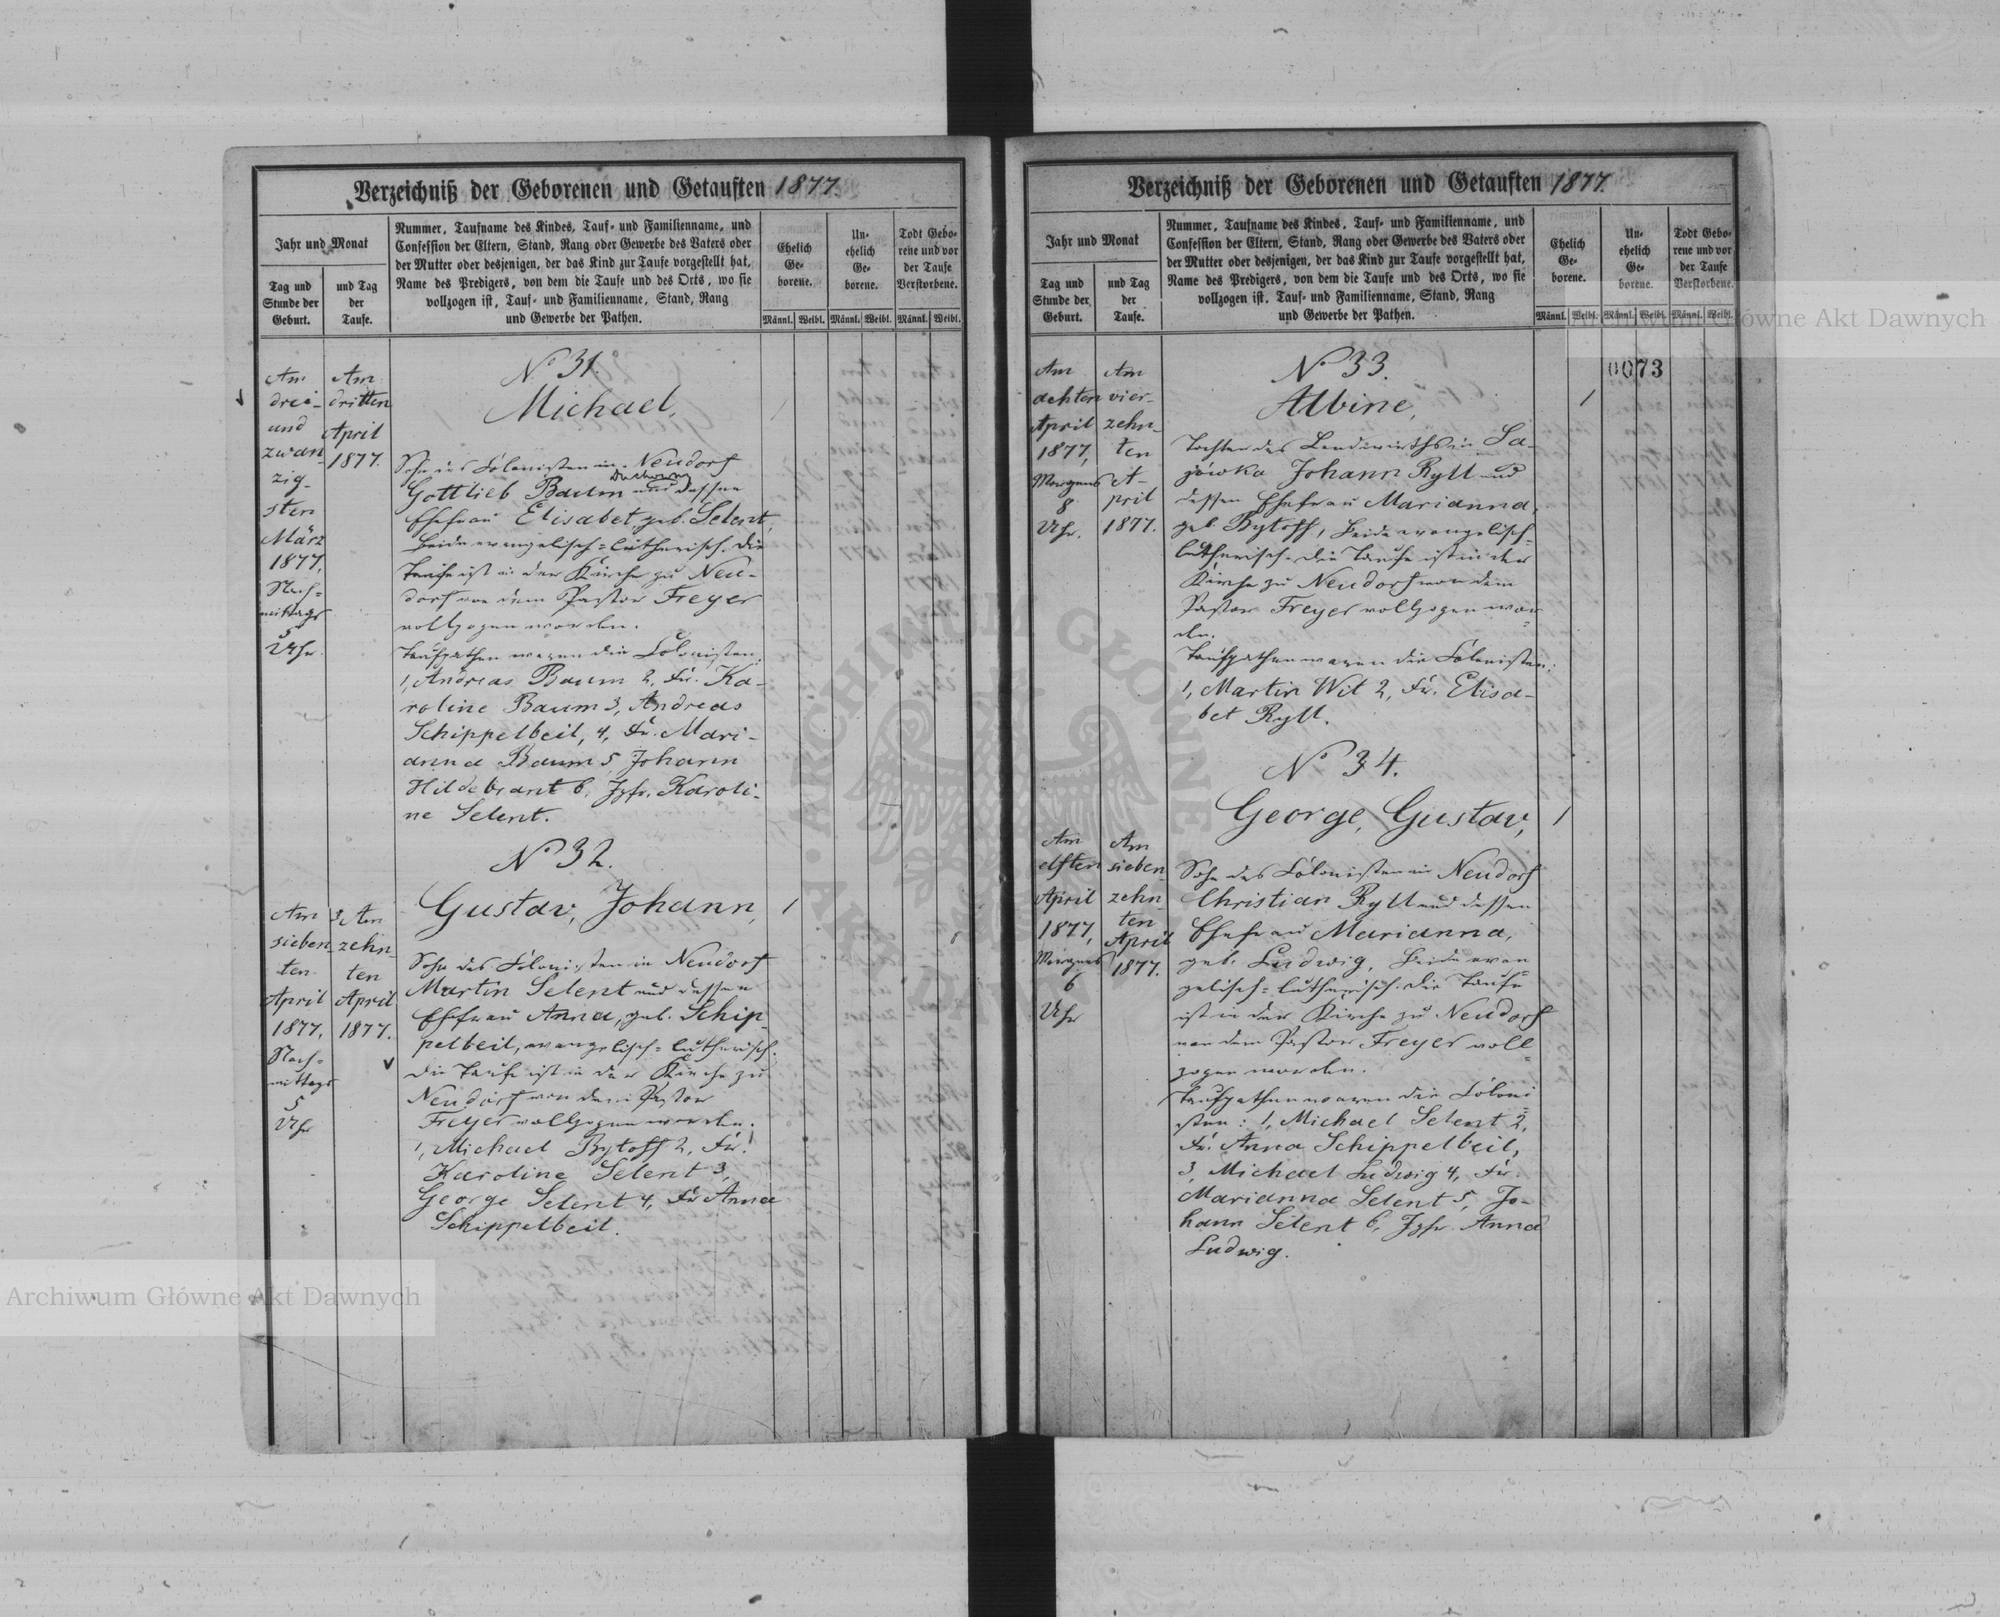 Verzeichniß der Geborenen und Getauften 1877.
Jahr und Monat
Tag und
Stunde der
Geburt.
und Tag
der
Taufe.
Nummer, Taufname des Kindes, Tauf- und Familienname, und
Confession der Eltern, Stand, Rang oder Gewerbe des Vaters oder
der Mutter oder desjenigen, der das Kind zur Taufe vorgestellt hat,
Name des Predigers, von dem die Taufe und des Orts, wo sie
vollzogen ist, Tauf- und Familienname, Stand, Rang
und Gewerbe der Pathen.
Ehelich
Ge-
borene.
Un-
ehelich
Ge-
borene.
Todt Gebo-
rene und vor
der Taufe
Verstorbene.
Männl. Weibl. Männl. Weibl. Männl. Weibl.
Am
drei-
und
zwan-
zig-
sten
März
1877,
Nach-
mittags
5
Uhr.
Am
dritten
April
1877.
No 31.
Michael,
Sohn des Colonisten in Neudorf
Gottlieb Baum und dessen
Ehefrau Elisabet, geb. Selent,
beide evangelisch-lutherisch. Die
Taufe ist in der Kirche zu Neu-
dorf von dem Pastor Freyer
vollzogen worden.
Taufpathen waren die Colonisten:
1, Andreas Baum 2, Fr. Ka-
roline Baum 3, Andreas
Schippelbeil, 4, Fr. Mari-
anna Baum 5 Johann
Hildebrant 6, Jgfr. Karoli-
ne Selent.
Am
sieben-
ten
April
1877,
Nach-
mittags
5
Uhr
Am
zehn-
ten
April
1877.
No 32.
Gustav, Johann,
1
Sohn des Colonisten in Neudorf
Martin Selent und dessen
Ehefrau Anna, geb. Schip-
pelbeil, evangelisch-lutherisch.
Die Taufe ist in der Kirche zu
Neudorf von dem Pastor
Freyer vollzogen worden.
1, Michael Bytoff 2, Fr.
Karoline Selent 3,
George Selent 4, Fr Anna
Schippelbeil.
Verzeichniß der Geborenen und Getauften 1877.
Jahr und Monat
Tag und
Stunde der
Geburt.
und Tag
der
Taufe.
Nummer, Taufname des Kindes, Tauf- und Familienname, und
Confession der Eltern, Stand, Rang oder Gewerbe des Vaters oder
der Mutter oder desjenigen, der das Kind zur Taufe vorgestellt hat,
Name des Predigers, von dem die Taufe und des Orts, wo sie
vollzogen ist, Tauf- und Familienname, Stand, Rang
und Gewerbe der Pathen.
Ehelich
Ge-
borene.
Un-
ehelich
Ge-
borene.
Todt Gebo-
rene und vor
der Taufe
Verstorbene.
Männl. Weibl. Männl. Weibl. Männl. Weibl.
0073
Am
achten
April
1877,
Morgens
8
Uhr.
Am
vier-
zehn-
ten
A-
pril
1877.
No 33.
Albine,
1
Tochter des Landwirths in Sa-
jówka Johann Ryll und
dessen Ehefrau Marianna,
geb. Bytoff, beide evangelisch-
lutherisch. Die Taufe ist in der
Kirche zu Neudorf von dem
Pastor Freyer vollzogen wor-
den.
Taufpathen waren die Colonisten:
1, Martin Wit 2, Fr. Elisa-
bet Ryll.
Am
elften
April
1877,
Morgens
6
Uhr
Am
sieben-
zehn-
ten
April
1877.
No 34.
George, Gustav,
1
Sohn des Colonisten in Neudorf
Christian Ryll und dessen
Ehefrau Marianna,
geb. Ludwig, beide evan-
gelisch-lutherisch. Die Taufe
ist in der Kirche zu Neudorf
von dem Pastor Freyer voll-
zogen worden.
Taufpathen waren die Coloni-
sten: 1, Michael Selent 2,
Fr. Anna Schippelbeil,
3, Michael Ludwig 4, Fr.
Marianna Selent 5, Jo-
hann Selent 6, Jgfr. Anna
Ludwig.
Archiwum Główne Akt Dawnych
Archiwum Główne Akt Dawnych
ARCHIWUM GŁÓWNE AKT DAWNYCH